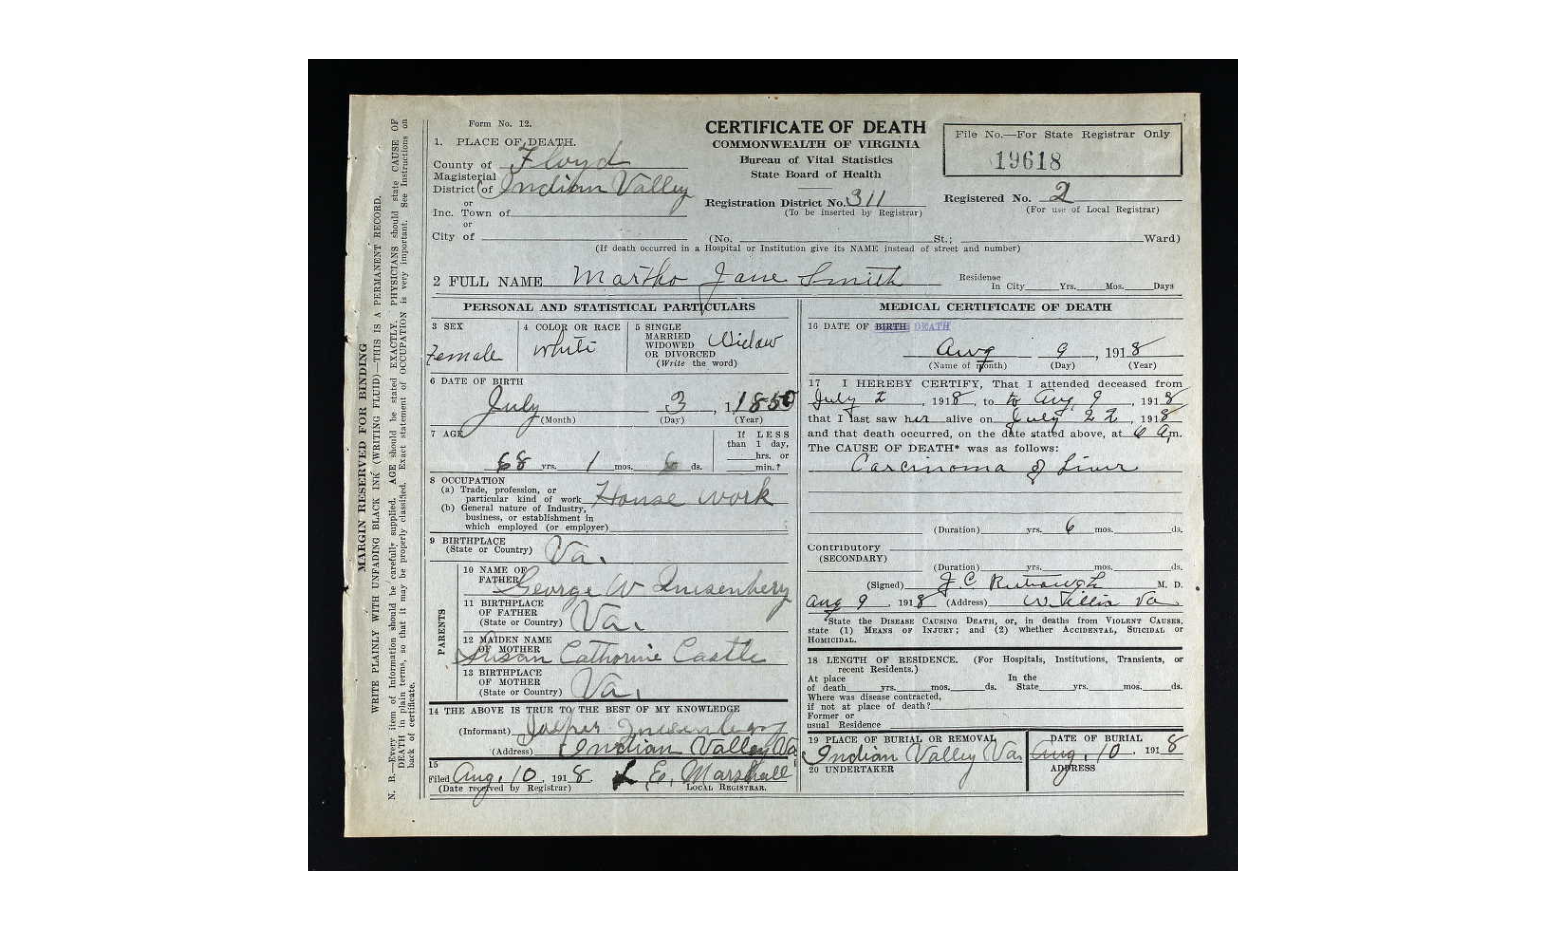 MARGIN RESERVED FOR BINDING
WRITE PLAINLY WITH UNFADING BLACK INK (WRITING FLUID)—THIS IS A PERMANENT RECORD.
N. B.—Every item of Information should be carefully supplied. AGE should be stated EXACTLY. PHYSICIANS should state CAUSE OF
DEATH in plain terms, so that it may be properly classified. Exact statement of OCCUPATION is very important. See Instructions on
back of certificate.
Form No. 12.
CERTIFICATE OF DEATH
COMMONWEALTH OF VIRGINIA
Bureau of Vital Statistics
State Board of Health
File No.—For State Registrar Only
19618
1. PLACE OF DEATH.
County of Floyd
Magisterial
District of Indian Valley
or
Inc. Town of
or
City of
Registration District No. 311
(To be inserted by Registrar)
Registered No. 2
(For use of Local Registrar)
(No. St.; Ward)
(If death occurred in a Hospital or Institution give its NAME instead of street and number)
2 FULL NAME Martha Jane Smith
Residense
In City Yrs. Mos. Days
PERSONAL AND STATISTICAL PARTICULARS
3 SEX
Female
4 COLOR OR RACE
White
5 SINGLE
MARRIED
WIDOWED
OR DIVORCED
(Write the word)
Widow
6 DATE OF BIRTH
July 3, 1850
(Month) (Day) (Year)
7 AGE
68 yrs. 1 mos. 6 ds.
If LESS
than 1 day,
hrs. or
min.†
8 OCCUPATION
(a) Trade, profession, or
particular kind of work House work
(b) General nature of Industry,
business, or establishment in
which employed (or emplpyer)
9 BIRTHPLACE
(State or Country) Va.
PARENTS
10 NAME OF
FATHER George W Quisenbery
11 BIRTHPLACE
OF FATHER
(State or Country) Va.
12 MAIDEN NAME
OF MOTHER
Susan Cathorine Castle
13 BIRTHPLACE
OF MOTHER
(State or Country) Va.
14 THE ABOVE IS TRUE TO THE BEST OF MY KNOWLEDGE
(Informant) Jasper
(Address) Indian Valley Va
15
Filed Aug. 10, 1918 L. E. Marshall
(Date received by Registrar) LOCAL REGISTRAR.
MEDICAL CERTIFICATE OF DEATH
16 DATE OF BIRTH DEATH
Aug 9, 1918
(Name of month) (Day) (Year)
17 I HEREBY CERTIFY, That I attended deceased from
July 2, 1918, to to Aug 9, 1918
that I last saw her alive on July 22, 1918
and that death occurred, on the date stated above, at 6 a m.
The CAUSE OF DEATH* was as follows:
Carcinoma of Liver
(Duration) yrs. 6 mos. ds.
Contributory
(SECONDARY)
(Duration) yrs. mos. ds.
(Signed) J C M. D.
Aug 9, 1918 (Address) Willis Va
*State the DISEASE CAUSING DEATH, or, in deaths from VIOLENT CAUSES,
state (1) MEANS OF INJURY; and (2) whether ACCIDENTAL, SUICIDAL or
HOMICIDAL.
18 LENGTH OF RESIDENCE. (For Hospitals, Institutions, Transients, or
recent Residents.)
At place In the
of death yrs. mos. ds. State yrs. mos. ds.
Where was disease contracted,
if not at place of death?
Former or
usual Residence
19 PLACE OF BURIAL OR REMOVAL
Indian Valley Va.
DATE OF BURIAL
Aug. 10, 1918
20 UNDERTAKER
ADDRESS